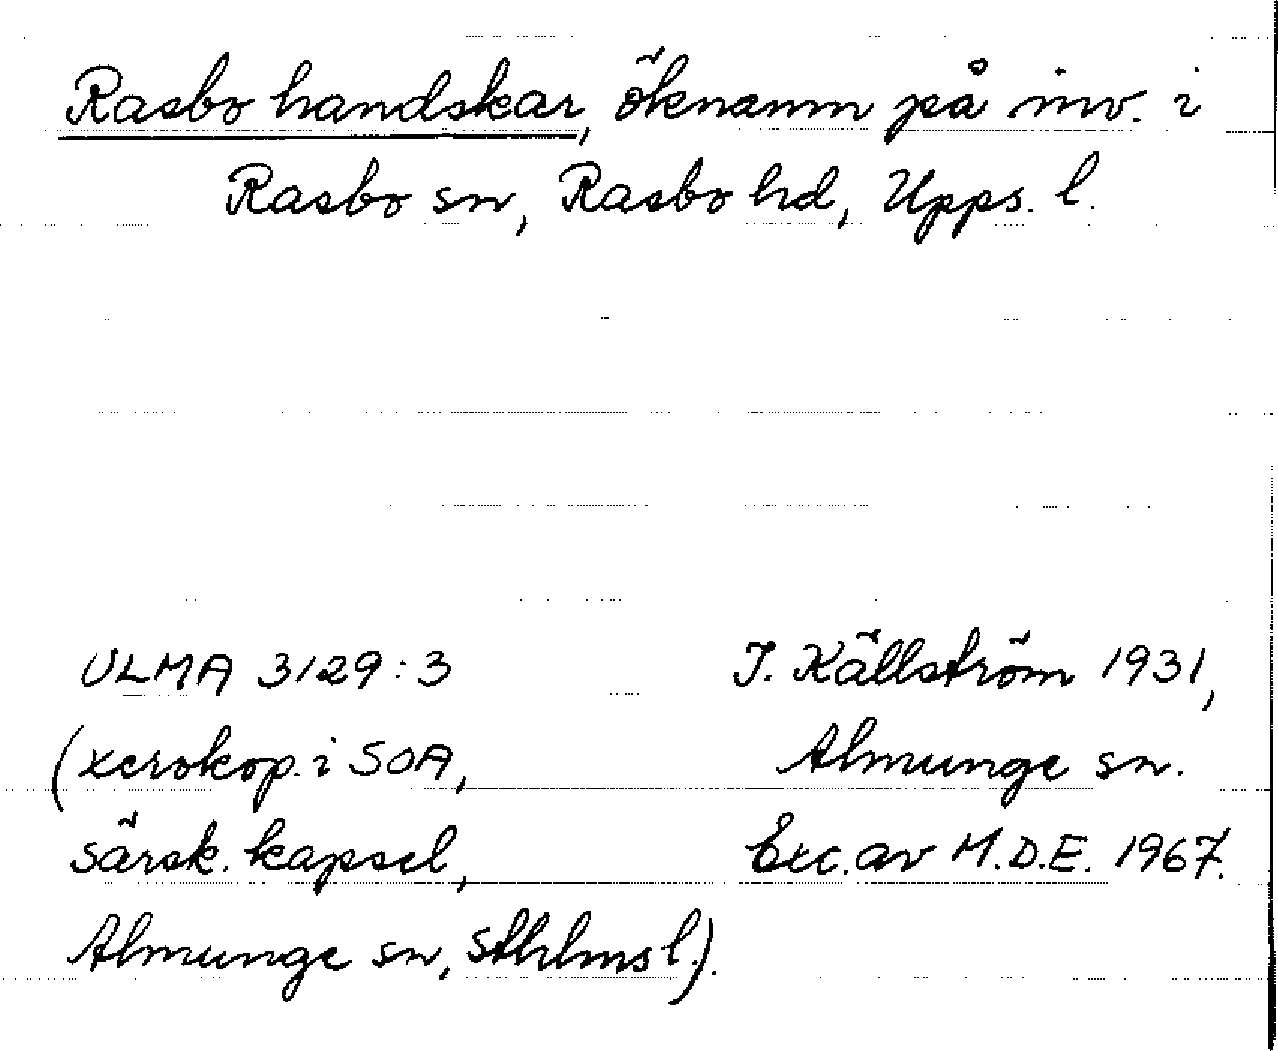 Rasbo handskar, öknamn på inv. i
Rasbo sn, Rasbo hd, Upps. l.
ULMA 3129:3
(xerokop. i SOA,
särsk. kapsel,
Almunge sn, Sthlms l.).
I. Källström 1931,
Almunge sn.
Exc. av M.D.E. 1967.